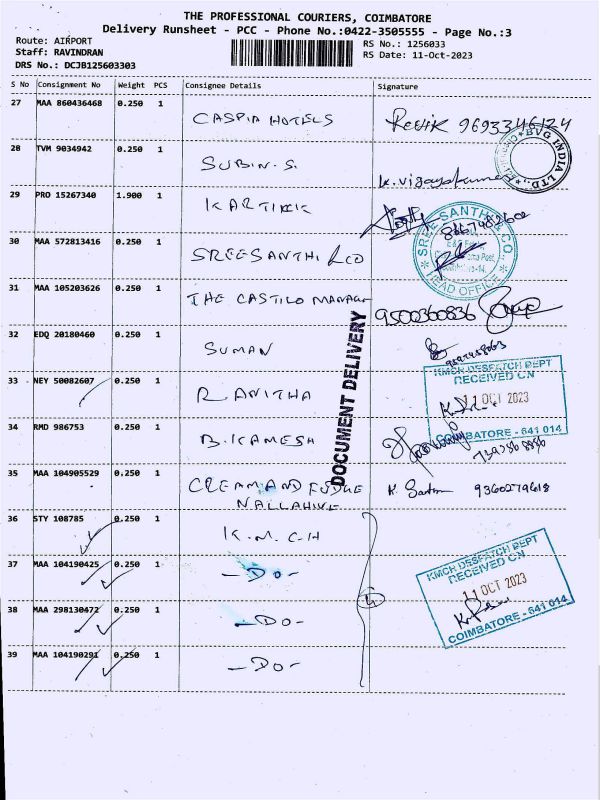 THE PROFESSIONAL COURIERS, COIMBATORE
Delivery Runsheet - PCC - Phone No.:0422-3505555 - Page No.:3
Route: AIRPORT
Staff: RAVINDRAN
DRS No.: DCJB125603303
RS No.: 1256033
RS Date: 11-Oct-2023
S No Consignment No Weight PCS Consignee Details Signature
27 MAA 860436468 0.250 1 CASPIA HOTELS 9693346124
BVG INDIA LTD.
28 TVM 9034942 0.250 1 SUBIN. S. K. vijayakumar
29 PRO 15267340 1.900 1 KARTIKK 8667482602
SREE SANTHI & CO
HEAD OFFICE
30 MAA 572813416 0.250 1 SREESANTHI & CO
31 MAA 105203626 0.250 1 THE CASTILO MANAGE 9500360836
32 EDQ 20180460 0.250 1 SUMAN
DOCUMENT DELIVERY
33 NEY 50082607 0.250 1 R. ANITHA
KMCH DESPATCH DEPT
RECEIVED ON
11 OCT 2023
COIMBATORE - 641 014
34 RMD 986753 0.250 1 B. KAMESH
35 MAA 104905529 0.250 1 CREAM AND FUDGE
NALLAHIVE
9360279618
36 STY 108785 0.250 1 K. M. C. H
37 MAA 104190425 0.250 1 - DO -
38 MAA 298130472 0.250 1 - DO -
39 MAA 104190291 0.250 1 - DO -
4
KMCH DESPATCH DEPT
RECEIVED ON
11 OCT 2023
COIMBATORE - 641 014